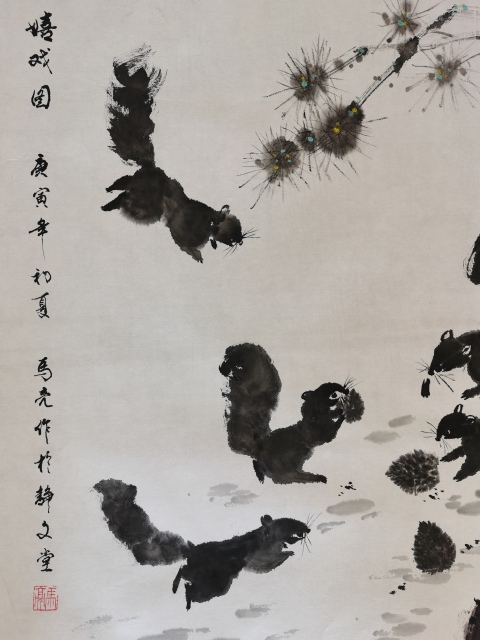 嬉戏图 庚寅年初夏 马亮作於静文堂